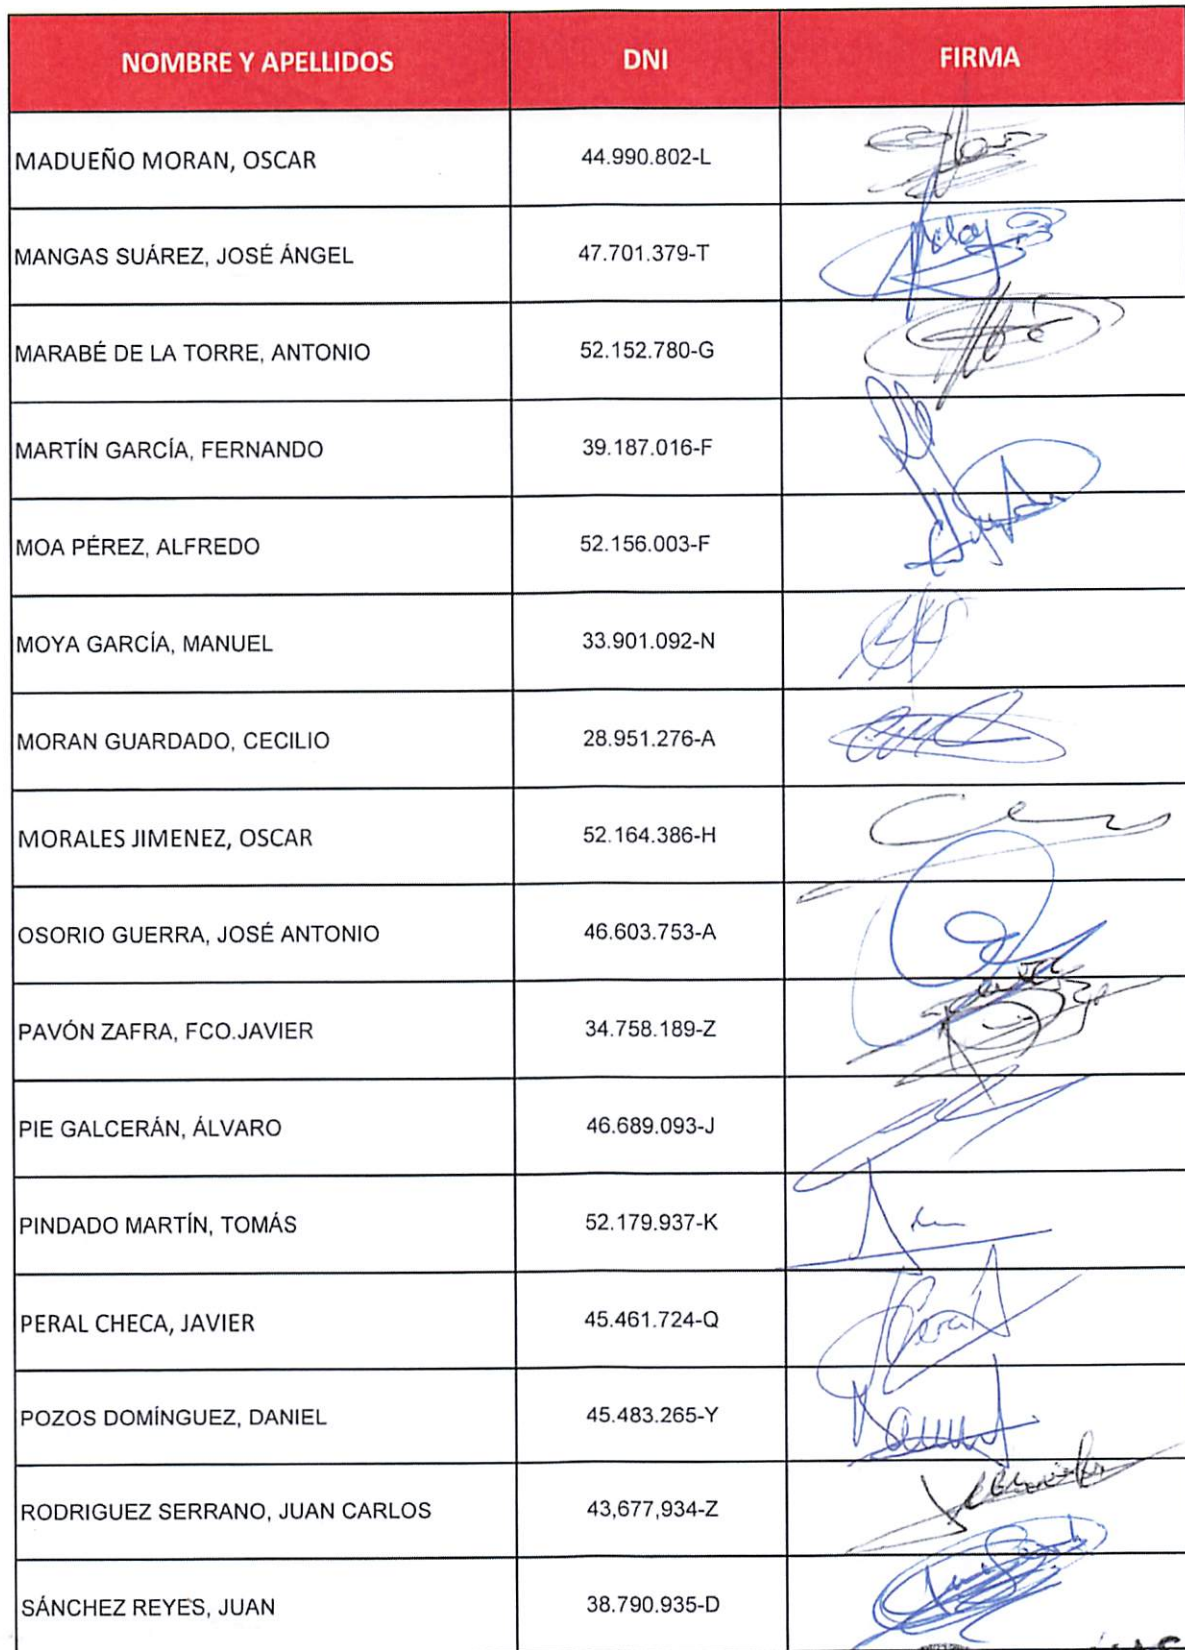 NOMBRE Y APELLIDOS DNI FIRMA
MADUEÑO MORAN, OSCAR 44.990.802-L
MANGAS SUÁREZ, JOSÉ ÁNGEL 47.701.379-T
MARABÉ DE LA TORRE, ANTONIO 52.152.780-G
MARTÍN GARCÍA, FERNANDO 39.187.016-F
MOA PÉREZ, ALFREDO 52.156.003-F
MOYA GARCÍA, MANUEL 33.901.092-N
MORAN GUARDADO, CECILIO 28.951.276-A
MORALES JIMENEZ, OSCAR 52.164.386-H
OSORIO GUERRA, JOSÉ ANTONIO 46.603.753-A
PAVÓN ZAFRA, FCO.JAVIER 34.758.189-Z
PIE GALCERÁN, ÁLVARO 46.689.093-J
PINDADO MARTÍN, TOMÁS 52.179.937-K
PERAL CHECA, JAVIER 45.461.724-Q
POZOS DOMÍNGUEZ, DANIEL 45.483.265-Y
RODRIGUEZ SERRANO, JUAN CARLOS 43,677,934-Z
SÁNCHEZ REYES, JUAN 38.790.935-D